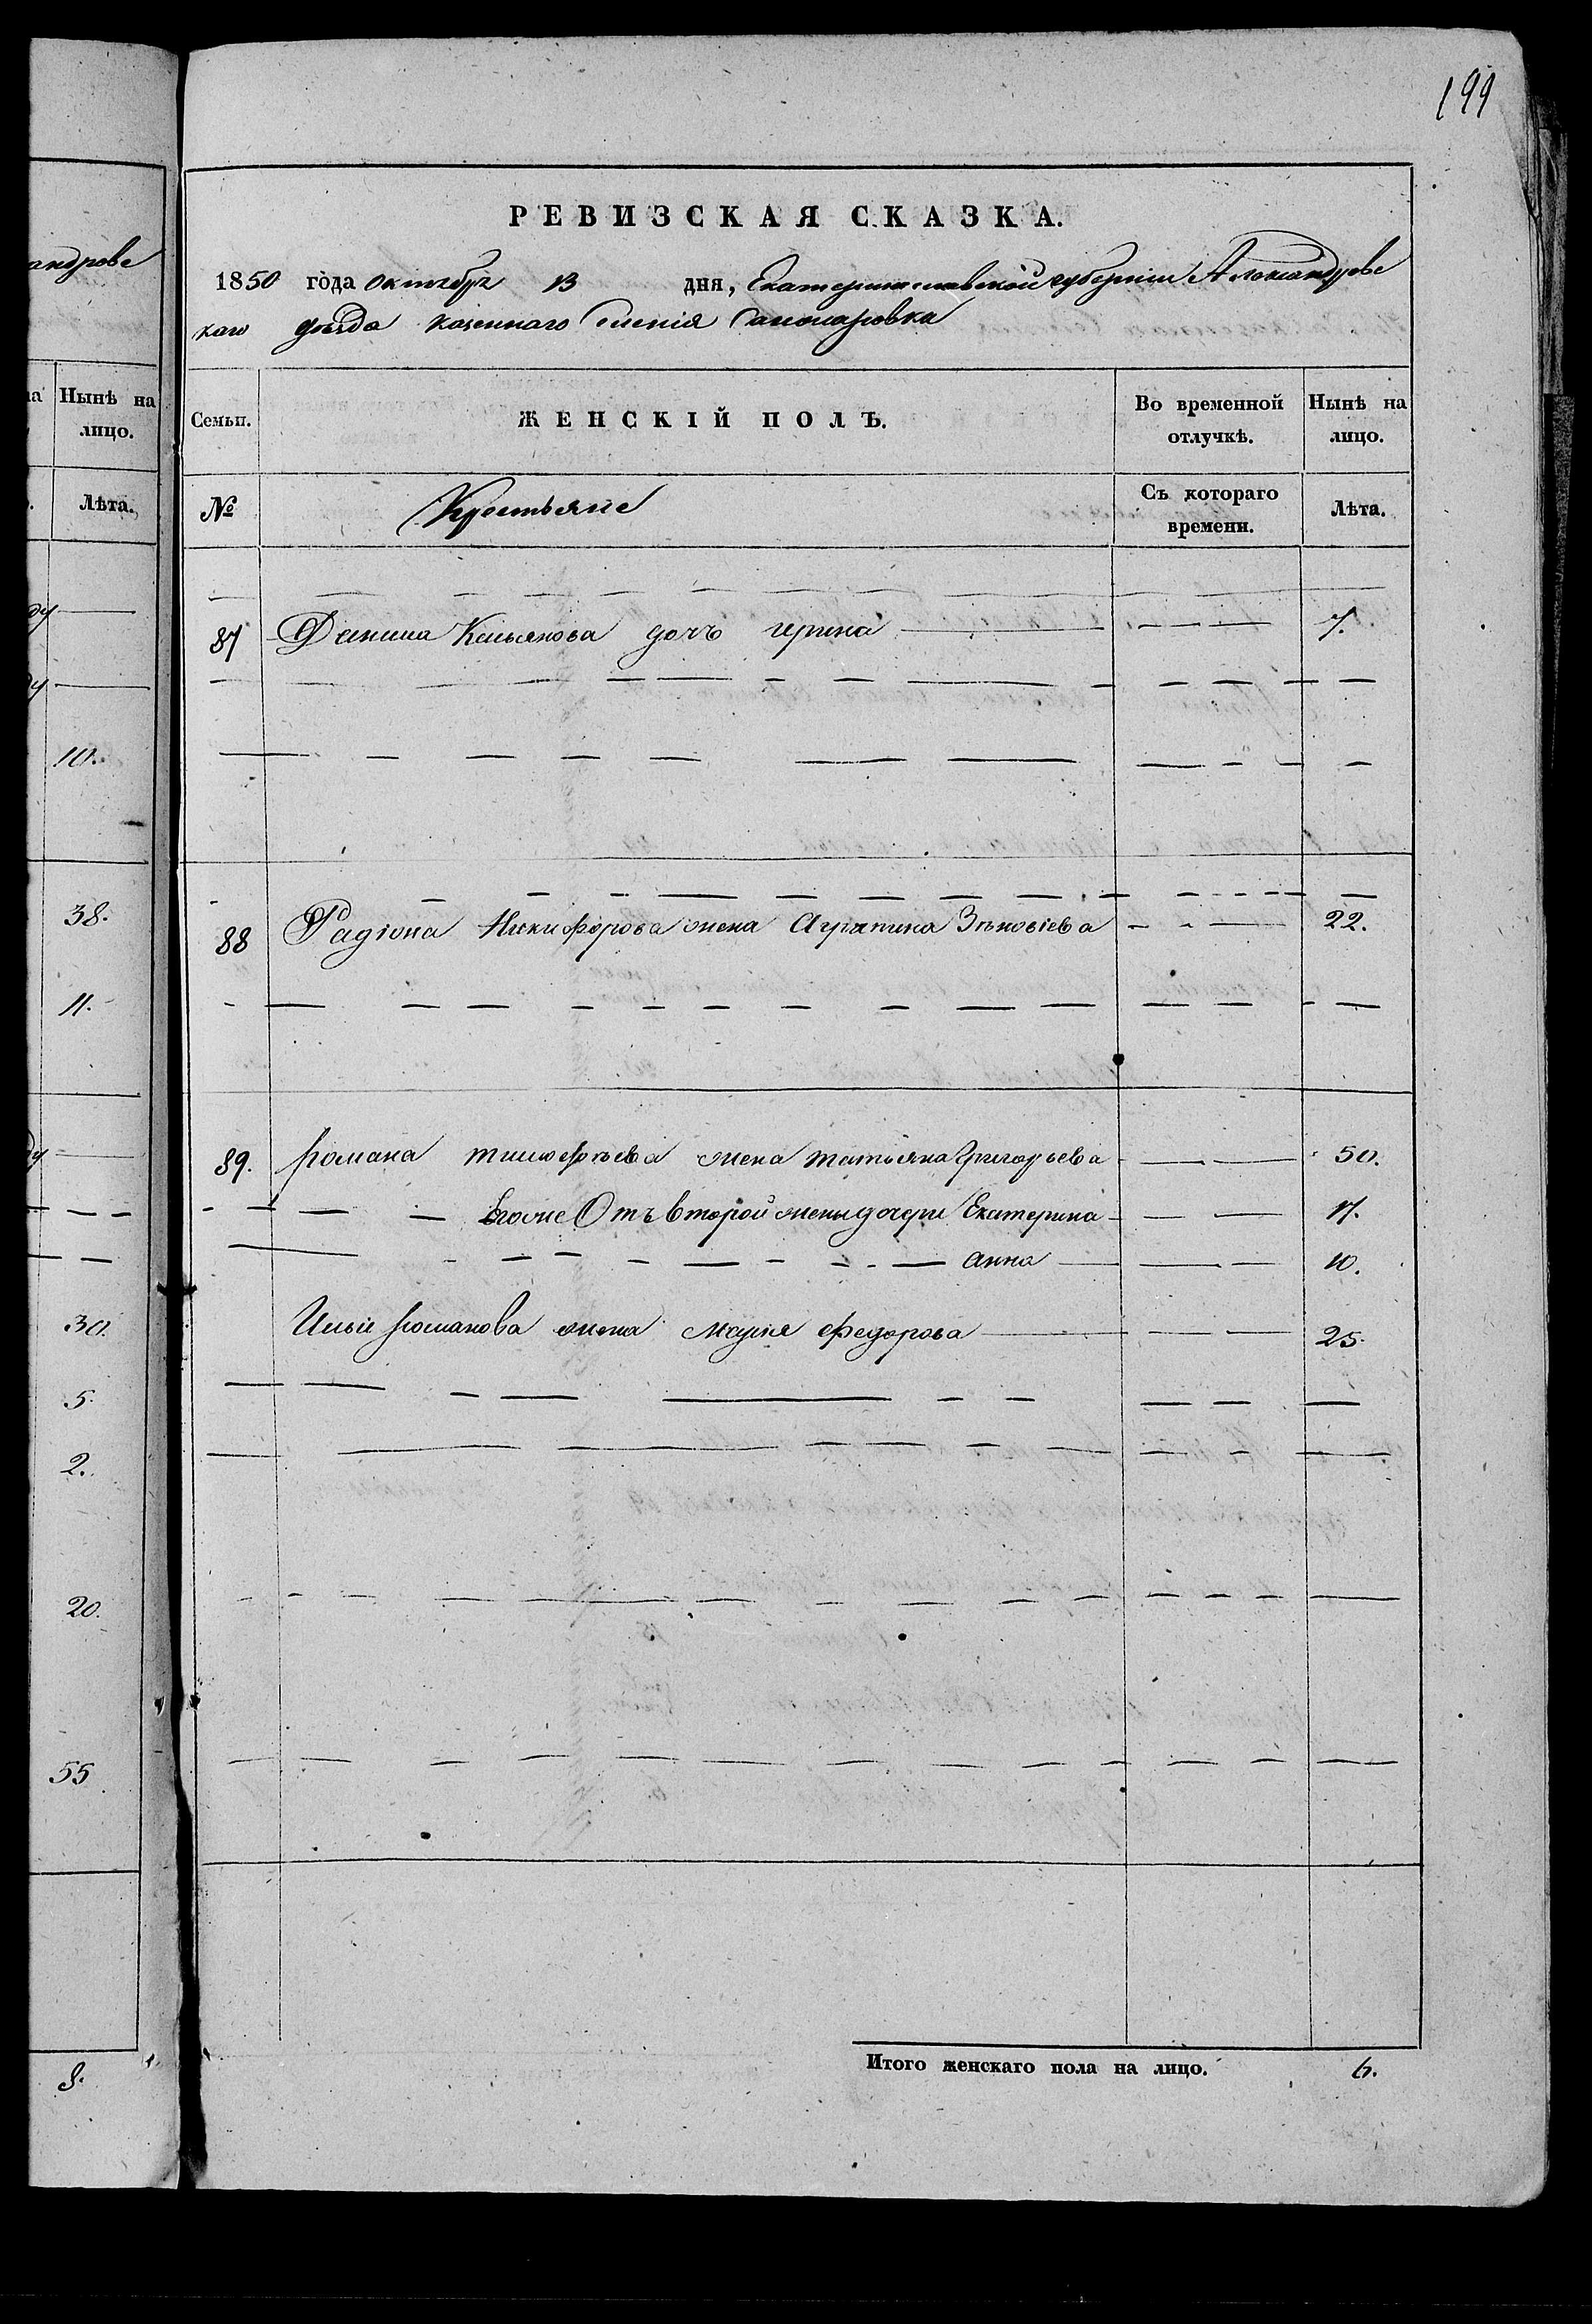 199
андрове
РЕВИЗСКАЯ СКАЗКА.
1850 года октября 13 дня, Екатеринославской губернии Александровс
каго уѣзда казеннаго селенія
Нынѣ на лицо.
Лѣта.
10.
38.
11.
30.
5.
2.
20.
55
8.
Семьи. ЖЕНСКІЙ ПОЛЪ. Во временной отлучкѣ. Нынѣ на лицо.
№ Крестьяне Съ котораго времени. Лѣта.
87 Касьянова дочь ирина 7.
88 Радіона Никифорова жена Агрипина Зѣновіева 22.
89. романа тимофѣева жена татьяна Григорьева 50.
Егоже Отъ второй жены дочери Екатерина 17.
анна 10.
Ильи романова жена марія федорова 25.
Итого женскаго пола на лицо. 6.